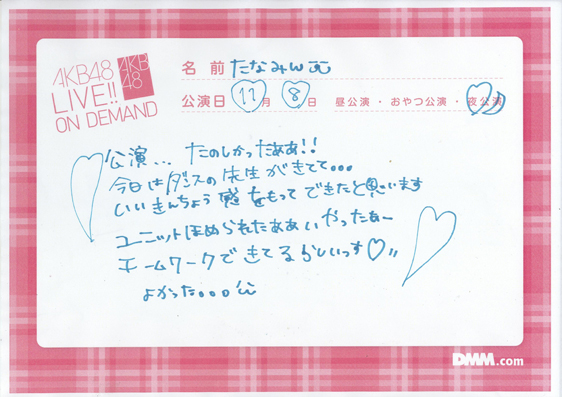 AKB48
LIVE!!
ON DEMAND
AKB
48
名前 たなみん
公演日 11月 8日 昼公演・おやつ公演・夜公演
公演... たのしかったぁあ!!
今日はダンスの先生がきてて...
いいきんちょう感をもってできたと思います
ユニットほめられたぁあぃやったぁー
チームワークできてるらしいっす♡
よかった...
DMM.com